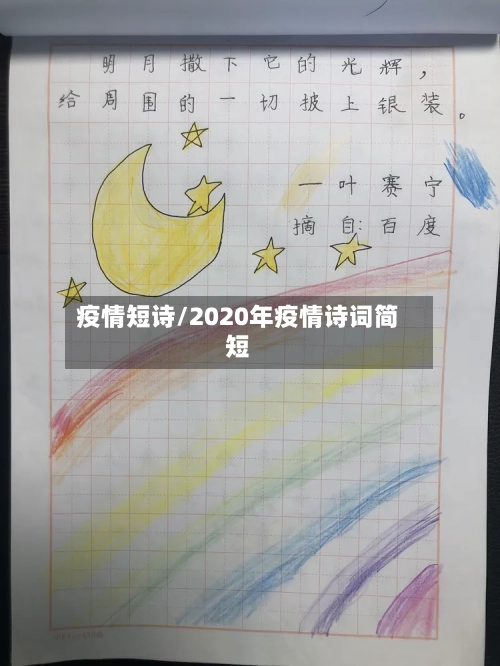 明月撒下它的光辉，
给周围的一切披上银装。
一叶赛宁
摘自:百度
疫情短诗/2020年疫情诗词简
短